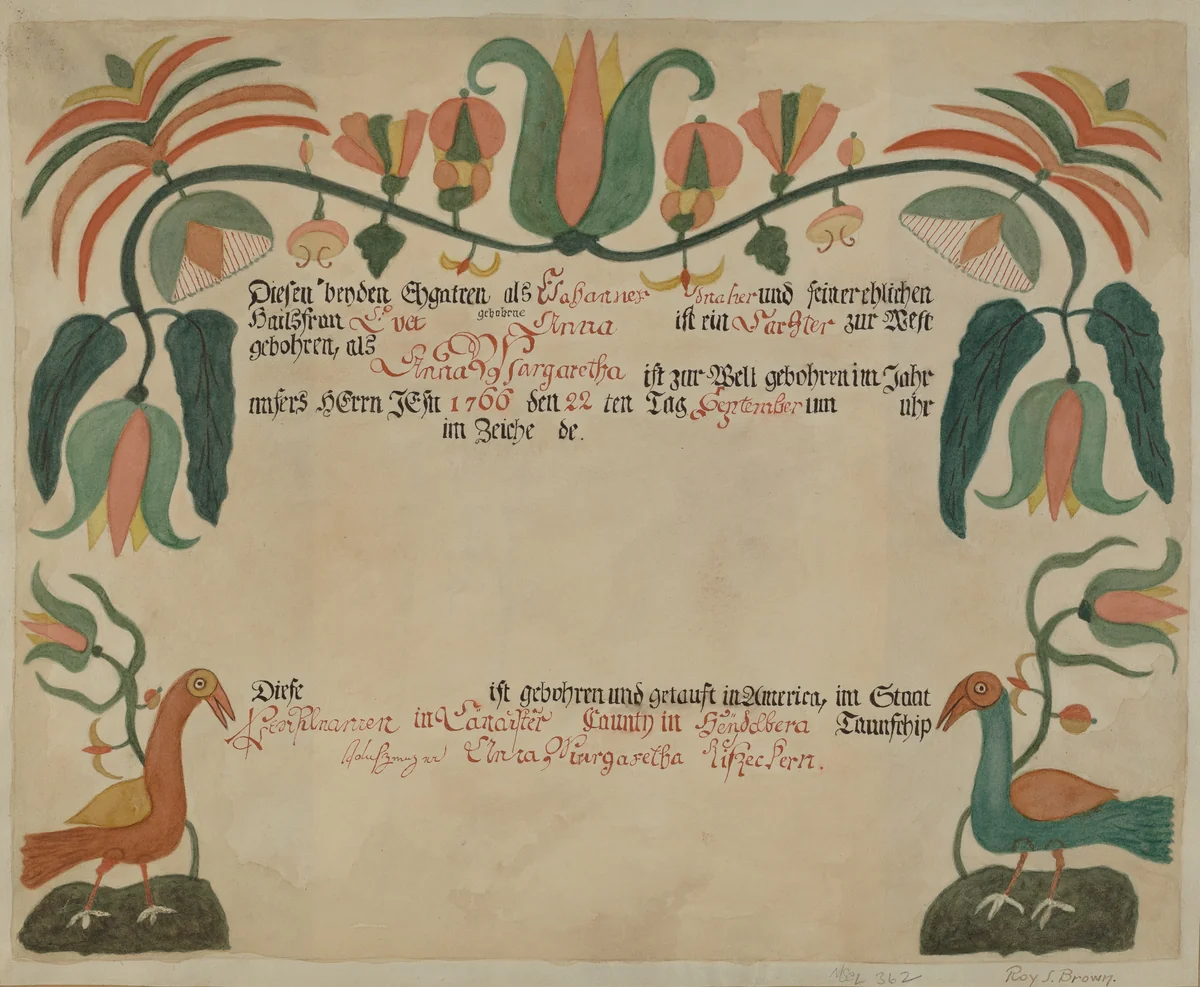 Diesen beyden Ehgatten, als Johannes und seiner ehlichen
Hausfrau Evet gebohrne Anna ist ein Tochter zur Welt
gebohren, als
Anna Margaretha ist zur Welt gebohren im Jahr
unsers HErrn JEsu 1766 den 22 ten Tag September um uhr
im Zeiche de.
Diese ist gebohren und getauft in America, im Staat
in Lancaster County in Taunschip
Anna Margaretha
362 Roy S. Brown.